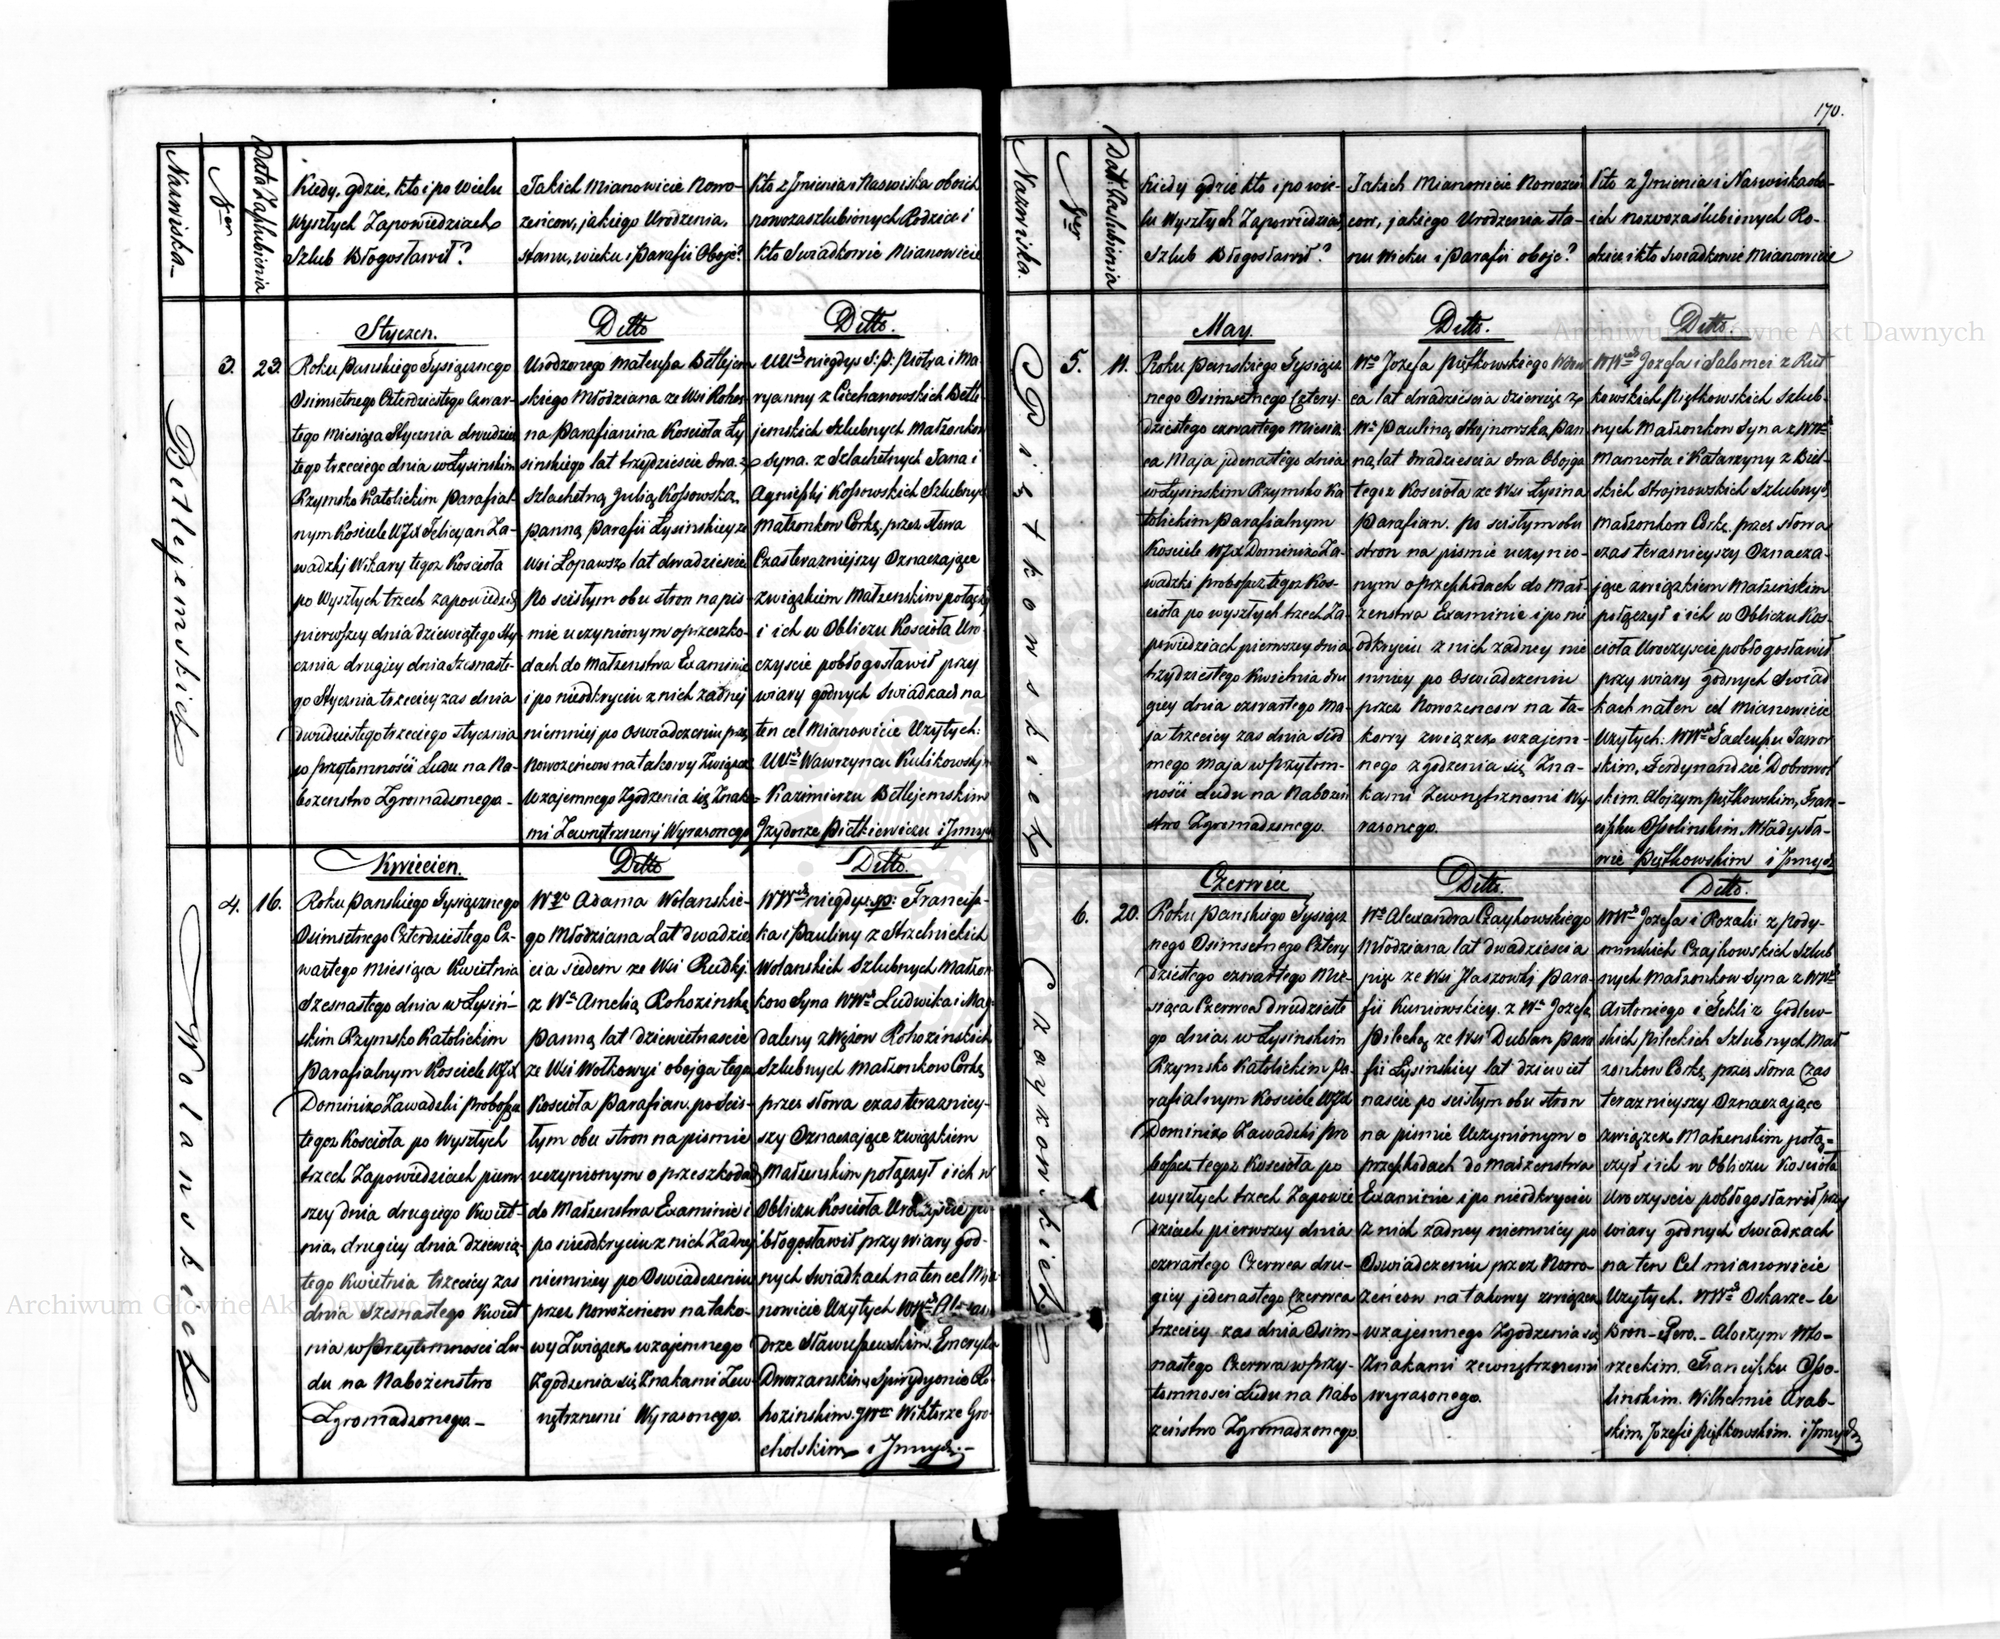 170.
Nazwiska
Ner
Data Zaślubienia
Kiedy, gdzie, kto i po wielu
Wyszłych Zapowiedziach
Szlub Błogosławił?
Jakich Mianowicie Nowo-
żeńców, jakiego Urodzenia,
stanu, wieku i Parafii Oboje?
Kto z Jmienia i Naswiska oboich
nowozaszlubionych Rodzice i
kto Swiadkowie Mianowicie
Betlejemskich
3.
23.
Styczen.
Roku Pańskiego Tysiącznego
Osimsetnego Czterdziestego Czwar-
tego Miesiąca Stycznia dwudzies
tego trzeciego dnia w Łysinskim
Rzymsko Katolickim Parafial-
nym Kosciele WJX Felicyan Za-
wadzki Wikary tegoz Kościoła
po Wyszłych trzech zapowiedziach
pierwszey dnia dziewiątego Sty-
cznia drugiey dnia Szesnaste-
go Stycznia trzeciey zas dnia
dwudziestego trzeciego Stycznia
w przytomności Ludu na Na-
bozenstwo Zgromadzonego -
Ditto
Urodzonego Mateusza Betlejem-
skiego Młodziana ze Wsi Rohoz-
na Parafianina Kościoła Ły
sinskiego lat trzydziescie dwa. z
Szlachetną Julią Kossowską
panną Parafii Łysinskiey ze
Wsi Łopawsz lat dwadziescie
Po scisłym obu stron na pis-
mie uczynionym o przeszko-
dach do Małzenstwa Examinie
i po nieodkryciu z nich zadnej
niemniej po Oswiadczeniu przez
Nowożeńcow na takowy Związek
Uzajemnego Zgodzenia się Znaka-
mi Zewnętrznemi Wyrazonego
Ditto.
niegdys S: P: Piotra i Ma
ryanny z Ciechanowskich Betle-
jemskich Szlubnych Małzonkow
Syna. z Szlachetnych Jana i
Agnieszki Kossowskich Szlubnych
Małzonkow Corkę, przez słowa
Czas terazniejszy Oznaczające
związkiem Małzenskim połączył
i ich w Obliczu Kościoła Uro-
czyscie pobłogosławił przy
wiary godnych Swiadkach na
ten cel Mianowicie Uzytych:
Wawrzyncu Kulikowskim
Kazimierzu Betlejemskim
Jzydorze Pietkiewiczu i Jnnych
Wolanskich
4.
16.
Kwiecien.
Roku Panskiego Tysiącznego
Osimsetnego Czterdziestego Cz-
wartego Miesiąca Kwietnia
Szesnastego dnia w Łysiń-
skim Rzymsko Katolickim
Parafialnym Kosciele WJX
Dominik Zawadzki Proboszcz
tegoz Kościoła po Wyszłych
trzech Zapowiedziach pierw
szey dnia drugiego Kwiet-
nia, drugiey dnia dziewią-
tego Kwietnia trzeciey zas
dnia Szesnastego Kwiet
nia w Przytomnosci Lu-
du na Nabozenstwo
Zgromadzonego -
Ditto
Wgo Adama Wolanskie-
go Młodziana Lat dwadzies
cia siedem ze Wsi Rudki
z Wą Amelią Rohozinską
Panną lat dziewietnascie
ze Wsi Wołkowyi obojga tegoz
Kościoła Parafian. po Scis-
łym obu stron na pismie
uczynionym o przeszkodach
do Małzenstwa Examinie i
po nieodkryciu z nich Zadnej
niemniey po Oswiadczeniu
przez Nowożeńcow na tako-
wy Związek wzajemnego
Zgodzenia się Znakami Zew-
nętrznemi Wyrazonego.
Ditto.
niegdys sp: Francisz-
ka i Pauliny z Strzelnickich
Wolanskich Szlubnych Małzon
kow Syna Ludwika i Mag
daleny z Wązow Rohozinskich
Szlubnych Małzonkow Corkę
przez słowa czas terazniey-
szy Oznaczające związkiem
Małzenskim połączył i ich w
Obliczu Kościoła Uroczyscie po-
błogosławił przy wiary god-
nych swiadkach na ten cel Mia
nowicie Uzytych
drze Emeryku
Dworzanskim, Spirydyonie Ro-
hozinskim. Wiktorze Gro-
cholskim i Jnnych. -
Nazwiska.
Ner
Data Zaslubienia
Kiedy gdzie kto i po wie-
lu Wyszłych Zapowiedziach
Szlub Błogosławił?
Jakich Mianowicie Nowożeń
cow, jakiego Urodzenia sta-
nu Wieku i Parafii oboje?
Kto z Jmienia i Naswiska obo-
ich nowozaślubionych Ro-
dzice i kto Swiadkowie Mianowicie
Piątkowskich
5.
11.
May.
Roku Panskiego Tysiącz
nego Osimsetnego Cztery-
dziestego czwartego Miesią
ca Maja jedenastego dnia
w Łysinskim Rzymsko Ka
tolickim Parafialnym
Kosciele WJX Dominik Za-
wadzki Proboszcz tegoz Kos-
cioła po wyszłych trzech Za-
powiedziach pierwszey dnia
trzydziestego Kwietnia dru
giey dnia czwartego Ma-
ja trzeciey zas dnia Siod
mego Maja w przytom-
ności Ludu na Nabożeń
stwo Zgromadzonego.
Ditto.
Wo Jozefa Piątkowskiego Wdow
ca lat dwadziescia dziewięc z
Wą Pauliną Strojnowską, Pan
ną, lat dwadziescia dwa Obojga
tegoz Kościoła ze Wsi Łysina
Parafian. po scisłym obu
stron na pismie uczynio-
nym o przeszkodach do Mał
zenstwa Examinie i po nie
odkryciu z nich zadney nie
mniey po Oswiadczeniu
przez Nowożeńcow na ta-
kowy związek wzajem-
nego zgodzenia się Zna-
kami Zewnętrznemi Wy-
razonego.
Ditto.
Jozefa i Salomei z Rut
kowskich Piątkowskich Szlub-
nych Małzonkow Syna z
Mamerta i Katarzyny z Biel-
skich Strojnowskich Szlubnych
Małzonkow Corkę, przez słowa
czas terazniejszy Oznacza-
jące związkiem Małzenskim
połączył i ich w Obliczu Kos-
cioła Uroczyscie pobłogosławił
przy wiary godnych Swiad
kach na ten cel Mianowicie
Uzytych: Tadeuszu Jawor
skim, Ferdynandzie Dobrowol
skim. Alojzym Piątkowskim, Fran-
ciszku Ossolinskim. Władysła-
wie Piątkowskim i Jnnych
Czaykowskich
6.
20.
Czerwiec
Roku Panskiego Tysiącz
nego Osimsetnego Cztery
Dziestego czwartego Mie-
siąca Czerwca dwudzieste
go dnia w Łysinskim
Rzymsko Katolickim Pa-
rafialnym Kosciele WJX
Dominik Zawadzki Pro
boszcz tegoz Kościoła po
wyszłych trzech Zapowie
dziach pierwszey dnia
czwartego Czerwca dru-
giey jedenastego Czerwca
trzeciey zas dnia Osim-
nastego Czerwca w przy-
tomnosci Ludu na Nabo
żeństwo Zgromadzonego
Ditto.
Wo Alexandra Czaykowskiego
Młodziana lat dwadziescia
pięc ze Wsi Para-
fii Kuniowskiey. z Wą Jozefą
Pilecką ze Wsi Dublan Para
fii Łysinskiey lat dziewięt
nascie po scisłym obu stron
na pismie Uczynionym o
przeszkodach do Małzenstwa
Examinie i po nieodkryciu
z nich zadney niemniey po
Oswiadczeniu przez Nowo-
żeńcow na takowy związek
wzajemnego Zgodzenia się
Znakami zewnętrznemi
wyrazonego.
Ditto.
Jozefa i Rozalii z Pody-
minskich Czajkowskich Szlub
nych Małzonkow Syna z
Antoniego i Tekli z Godlew-
skich Pileckich Szlubnych Mał
zonkow Corkę, przez słowa Czas
terazniejszy Oznaczające
związek Małzenskim połą-
czył i ich w Obliczu Kościoła
Uroczyscie pobłogosławił przy
wiary godnych Swiadkach
na ten Cel mianowicie
Uzytych. Oskarze - le
Bron - - Aloizym
Franciszku Osso-
linskim. Wilhelmie Arab-
skim, Jozefie Piątkowskim. i Jnnych
Archiwum Główne Akt Dawnych
Archiwum Główne Akt Dawnych